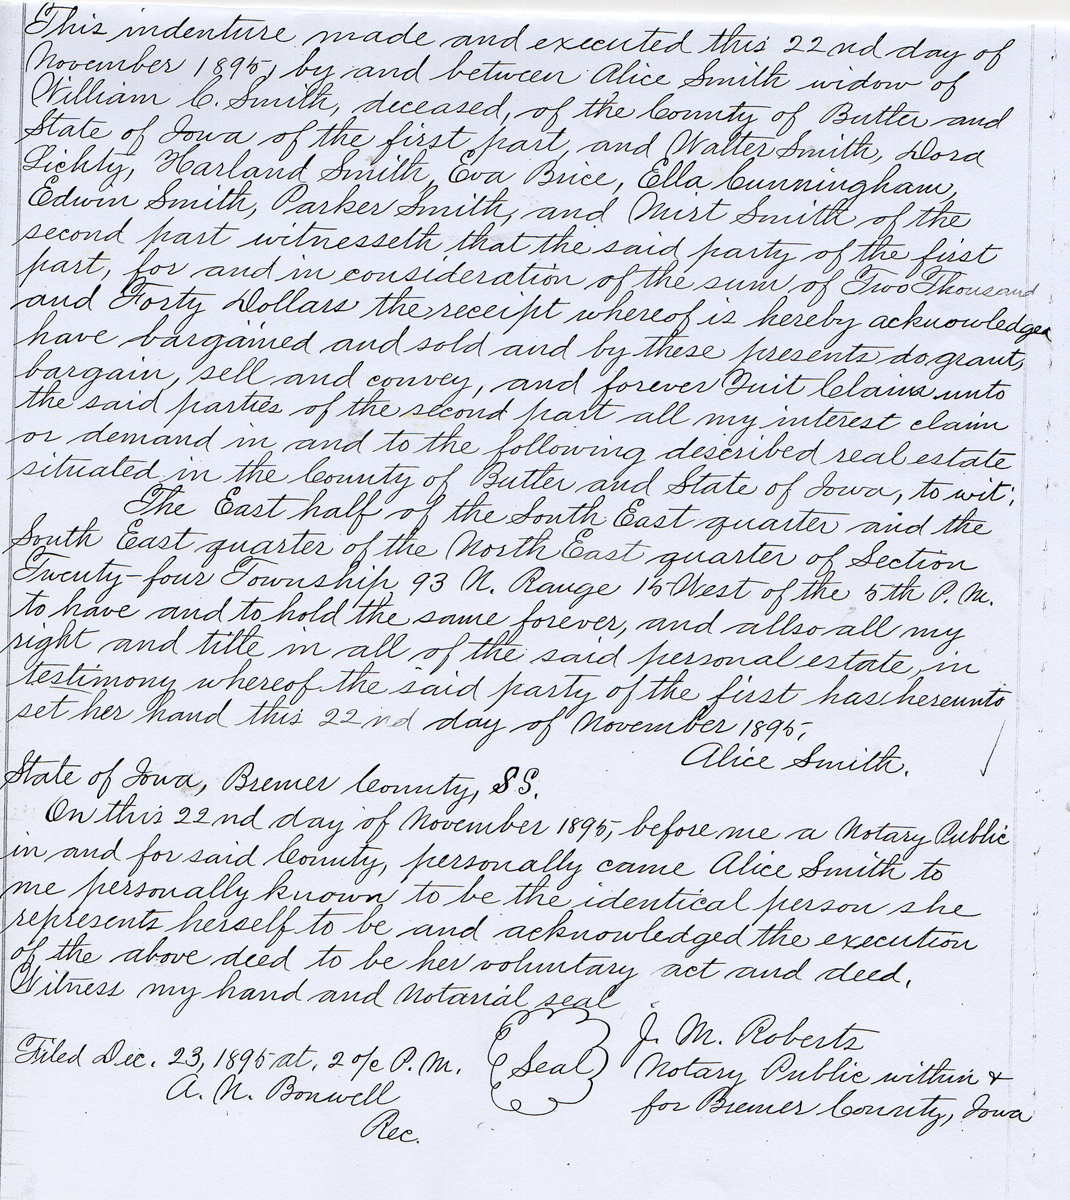 This indenture made and executed this 22nd day of
November 1895, by and between Alice Smith widow of
William C. Smith, deceased, of the County of Butler and
State of Iowa of the first part, and Walter Smith, Dora
Lichty, Harland Smith, Eva Brice, Ella Cunningham,
Edwin Smith, Parker Smith, and Mirt Smith of the
second part witnesseth that the said party of the first
part, for and in consideration of the sum of Two Thousand
and Forty Dollars the receipt whereof is hereby acknowledged
have bargained and sold and by these presents do grant,
bargain, sell and convey, and forever Quit Claims unto
the said parties of the second part all my interest claim
or demand in and to the following described real estate
situated in the County of Butler and State of Iowa, to wit:
The East half of the South East quarter and the
South East quarter of the North East quarter of Section
Twenty-four Township 93 N. Range 15 West of the 5th P.M.
to have and to hold the same forever, and allso all my
right and title in all of the said personal estate, in
testimony whereof the said party of the first has hereunto
set her hand this 22nd day of November 1895,
Alice Smith.
State of Iowa, Bremer County, SS.
On this 22nd day of November 1895, before me a Notary Public
in and for said County, personally came Alice Smith to
me personally known to be the identical person she
represents herself to be and acknowledged the execution
of the above deed to be her voluntary act and deed.
Witness my hand and Notarial seal
J. M. Roberts
Filed Dec. 23, 1895 at. 2 o/c P.M. Seal Notary Public within &
A. N. Bonwell for Bremer County, Iowa
Rec.